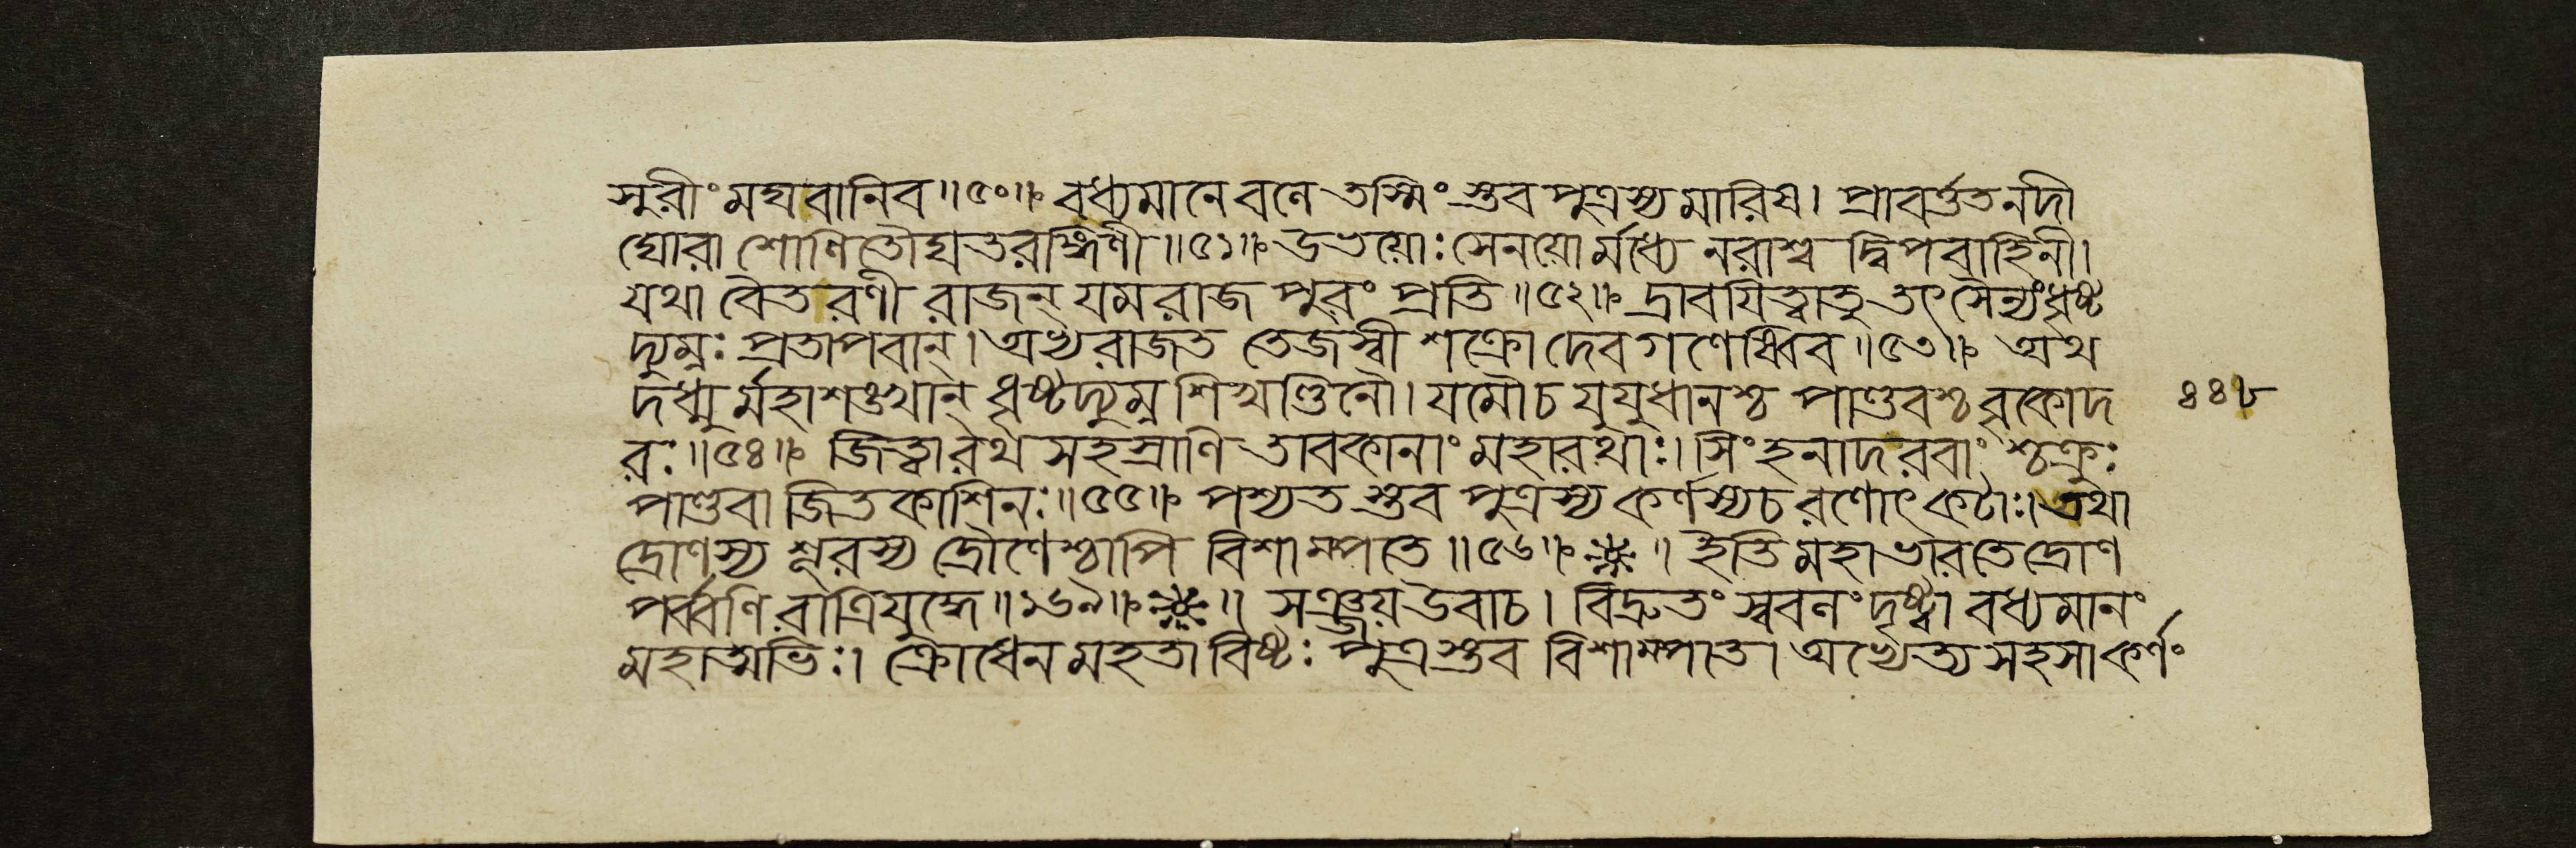 সুরীং মঘবানিব॥৫০॥ বধ্যমানে বলে তস্মিং স্তব পুত্রস্য মারিষ। প্রাবর্ত্তত নদী
ঘোরা শোণিতৌঘতরঙ্গিণী॥৫১॥ উভয়োঃ সেনয়োর্মধ্যে নরাশ্ব দ্বিপবাহিনী।
যথা বৈতরণী রাজন্ যমরাজ পুরং প্রতি॥৫২॥ দ্রাবয়িত্বাতু তৎ সৈন্যং ধৃষ্ট
দ্যুম্নঃ প্রতাপবান্। অভ্যরাজত তেজস্বী শক্রো দেবগণেষ্বিব॥৫৩॥ অথ
দধ্মুর্মহাশঙ্খান্ ধৃষ্টদ্যুম্ন শিখণ্ডিনৌ। যমৌচ যুযুধানশ্চ পাণ্ডবশ্চ বৃকোদ
৪৪৮
রঃ॥৫৪॥ জিত্বা রথ সহস্রাণি তাবকানাং মহারথাঃ। সিংহনাদরবাং শ্চক্রুঃ
পাণ্ডবা জিতকাশিনঃ॥৫৫॥ পশ্যত স্তব পুত্রস্য কর্ণস্যচ রণোৎকটাঃ। তথা
দ্রোণস্য শূরস্য দ্রৌণেশ্চাপি বিশাম্পতে॥৫৬॥ ইতি মহাভারতে দ্রোণ
পর্ব্বণি রাত্রিযুদ্ধে॥১৬৯॥ সঞ্জয় উবাচ। বিদ্রুতং স্ববলং দৃষ্ট্বা বধ্যমানং
মহাত্মভিঃ। ক্রোধেন মহতাবিষ্টঃ পুত্রস্তব বিশাম্পতে। অভ্যেত্য সহসা কর্ণং